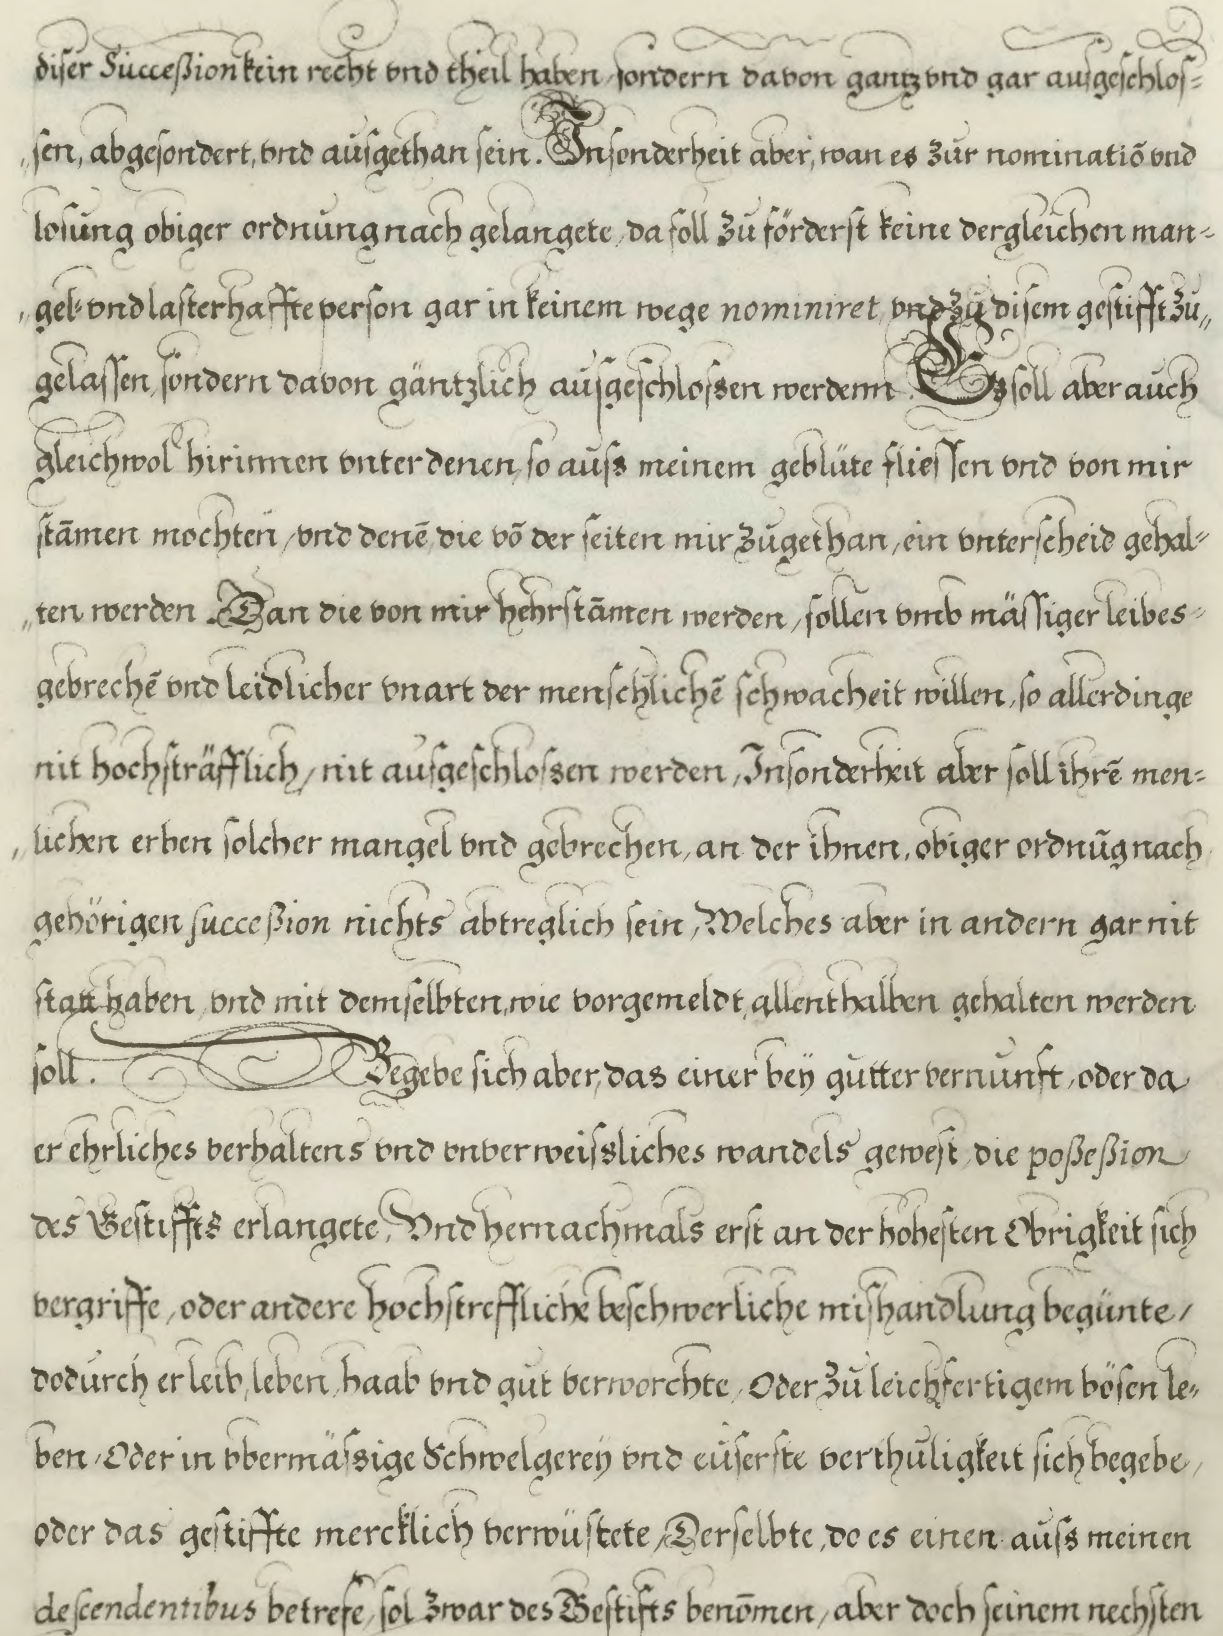 diser Succeßion kein recht vnd theil haben, sondern davon gantz vnd gar ausgeschlos-
sen, abgesondert, vnd ausgethan sein. Insonderheit aber, wan es zur nominatiō vnd
losung obiger ordnung nach gelangete, da soll zu förderst keine dergleichen man-
gel- vnd lasterhaffte person gar in keinem wege nominiret, vnd zu disem gestifft zu„
gelassen, sondern davon gäntzlich ausgeschlossen werdenn. Es soll aber auch
gleichwol hirinnen vnter denen, so auss meinem geblüte fliessen vnd von mir
stāmen mochten, vnd denē die vō der seiten mir zugethan, ein vnterscheid gehal-
„ten werden. Dan die von mir hehrstāmen werden, sollen vmb mässiger leibes-
gebrechē vnd leidlicher vnart der menschlichē schwacheit willen, so allerdinge
nit hochsträfflich, nit ausgeschlossen werden, Insonderheit aber soll ihrē men-
„lichen erben solcher mangel vnd gebrechen, an der ihnen, obiger ordnūg nach
gehörigen succeßion nichts abtreglich sein, Welches aber in andern gar nit
statt haben, vnd mit demselbten, wie vorgemeldt, allenthalben gehalten werden
soll. Begebe sich aber, das einer bey gutter vernunft, oder da
er ehrliches verhaltens vnd vnverweissliches wandels gewest, die poßeßion
des Gestiffts erlangete, Vnd hernachmals erst an der hohesten Obrigkeit sich
vergriffe, oder andere hochstreffliche beschwerliche mishandlung begünte,
dodurch er leib, leben, haab vnd gut verworchte, Oder zu leichfertigem bösen le-
ben, Oder in vbermässige Schwelgerey vnd euserste verthuligkeit sich begebe,
oder das gestiffte mercklich verwüstete, Derselbte, do es einen auss meinen
descendentibus betrefe, sol zwar des Gestifts benōmen, aber doch seinem nechsten